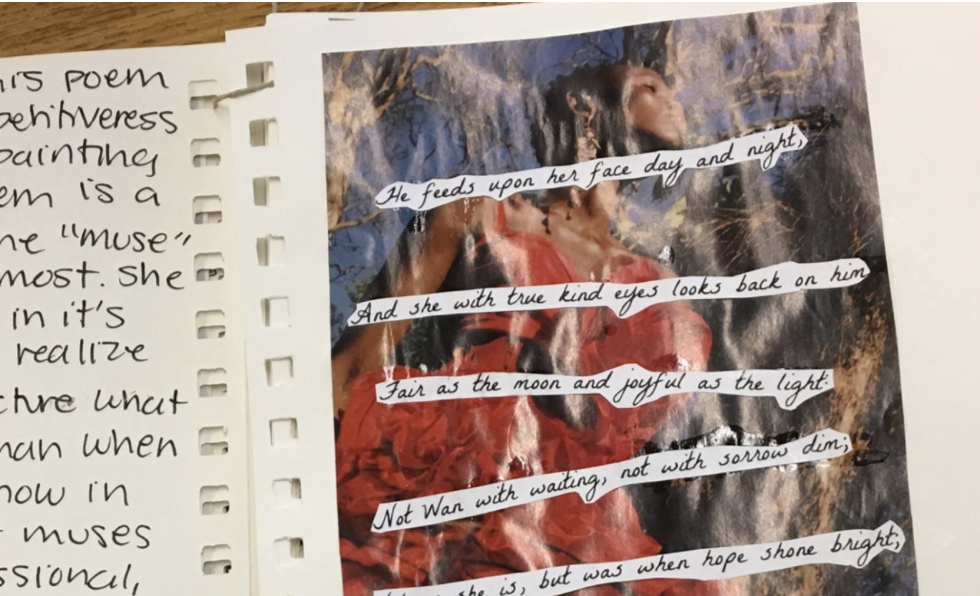 his poem
painting
em is a
he "muse"
most. She
in it's
realize
cture what
man when
now in
muses
ssional,
He feeds upon her face day and night,
And she with true kind eyes looks back on him
Fair as the moon and joyful as the light:
Not Wan with waiting, not with sorrow dim;
she is, but was when hope shone bright;